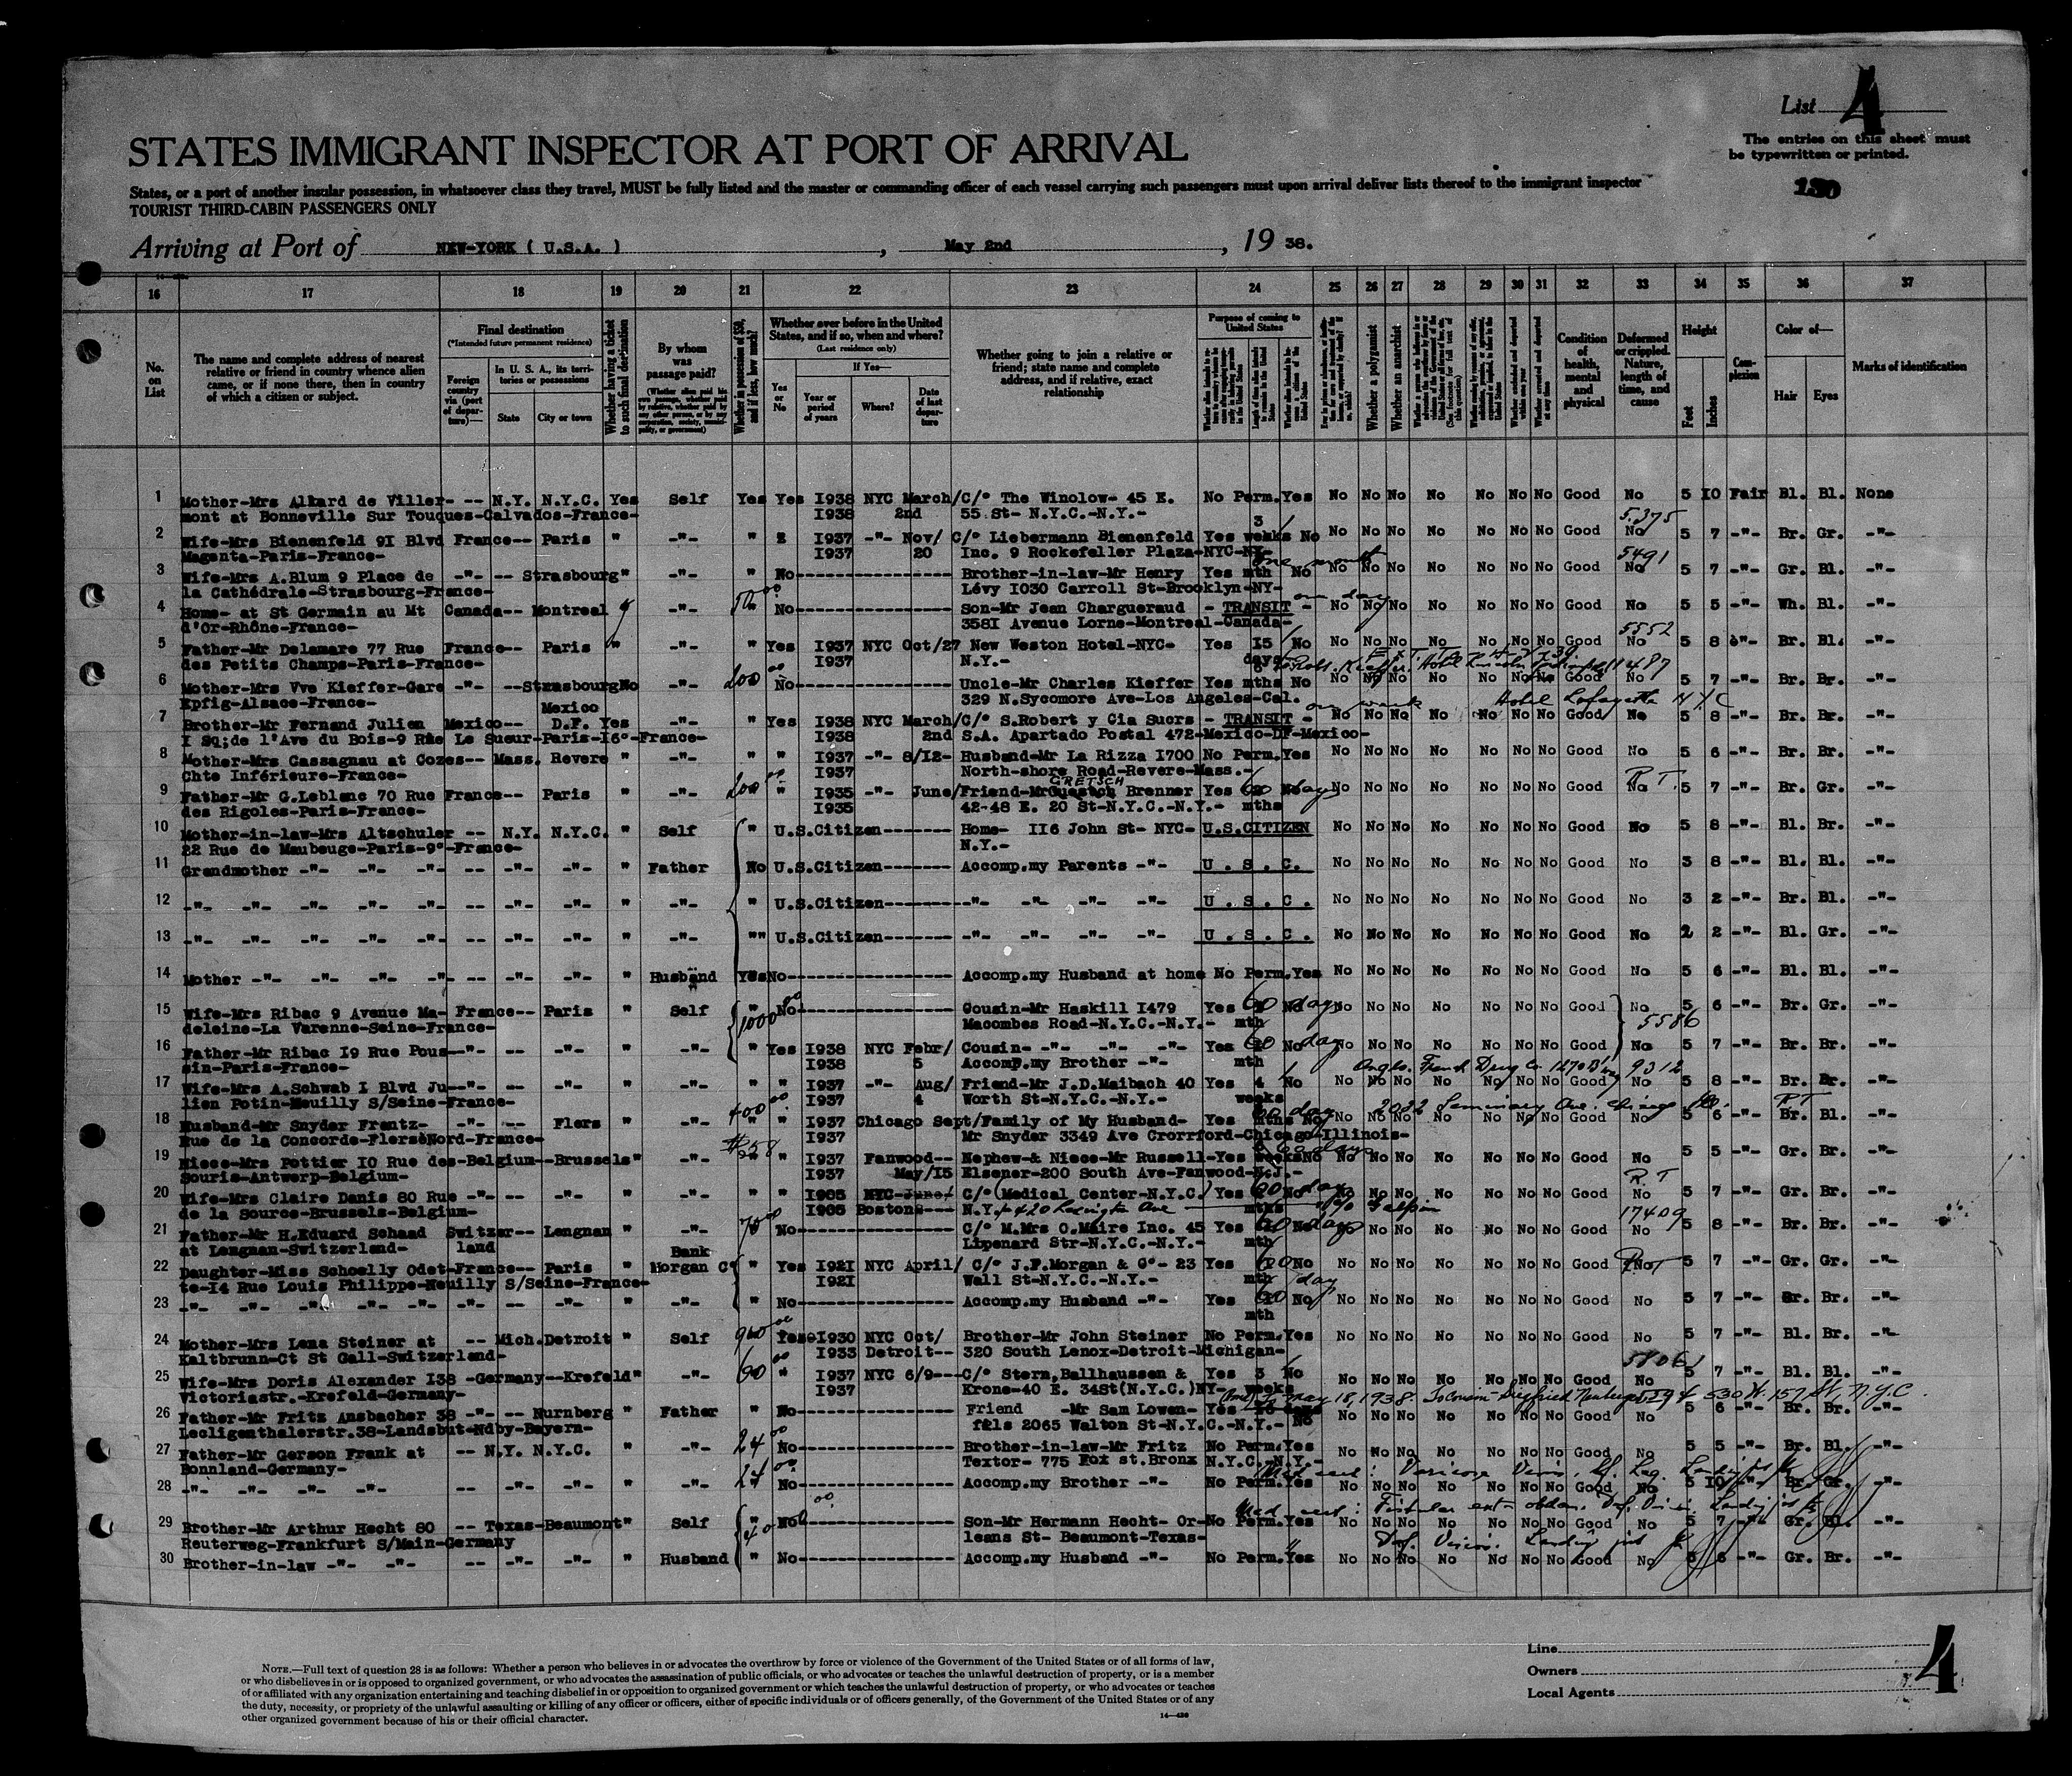 List 4
STATES IMMIGRANT INSPECTOR AT PORT OF ARRIVAL
The entries on this sheet must
be typewritten or printed.
States, or a port of another insular possession, in whatsoever class they travel, MUST be fully listed and the master or commanding officer of each vessel carrying such passengers must upon arrival deliver lists thereof to the immigrant inspector
130
TOURIST THIRD-CABIN PASSENGERS ONLY
Arriving at Port of NEW-YORK ( U.S.A. ) , May 2nd , 19 38.
16 17 18 19 20 21 22 23 24 25 26 27 28 29 30 31 32 33 34 35 36 37
No. on List
The name and complete address of nearest relative or friend in country whence alien came, or if none there, then in country of which a citizen or subject.
Final destination
(*Intended future permanent residence)
Foreign country via (port of departure)—
In U. S. A., its territories or possessions
State
City or town
Whether having a ticket to such final destination
By whom was passage paid?
Whether in possession of $50, and if less, how much?
Whether ever before in the United States, and if so, when and where?
(Last residence only)
Yes or No
If Yes—
Year or period of years
Where?
Date of last departure
Whether going to join a relative or friend; state name and complete address, and if relative, exact relationship
Purpose of coming to United States
Whether a polygamist
Whether an anarchist
Condition of health, mental and physical
Deformed or crippled. Nature, length of time, and cause
Height
Feet
Inches
Complexion
Color of—
Hair
Eyes
Marks of identification
1 Mother-Mrs Alkard de Viller- -- N.Y. N.Y.C. Yes Self Yes Yes 1938 NYC March/ C/° The Winolow- 45 E. No Perm. Yes No No No No No No No Good No 5 10 Fair Bl. Bl. None
mont at Bonneville Sur Touques-Calvados-France- 1938 2nd 55 St- N.Y.C.-N.Y.- 5375
2 Wife-Mrs Bienenfeld 91 Blvd France-- Paris " -"- " 1937 -"- Nov/ C/° Liebermann Bienenfeld Yes 3 weeks No No No No No No No No Good No 5 7 -"- Br. Gr. -"-
Magenta-Paris-France- 1937 20 Inc. 9 Rockefeller Plaza-NYC-NY- 5491
3 Wife-Mrs A.Blum 9 Place de -"- -- Strasbourg " -"- " No---- Brother-in-law-Mr Henry Yes mth No one month No No No No No No No Good No 5 7 -"- Gr. Bl. -"-
la Cathédrale-Strasbourg-France- Lévy 1030 Carroll St-Brooklyn-NY-
4 Home- at St Germain au Mt Canada-- Montreal -"- 50 00 No---- Son-Mr Jean Chargueraud - TRANSIT - one day No No No No No No No Good No 5 5 -"- Wh. Bl. -"-
d'Or-Rhône-France- 3581 Avenue Lorne-Montreal-Canada- 5552
5 Father-Mr Delamare 77 Rue France-- Paris " -"- " Yes 1937 NYC Oct/27 New Weston Hotel-NYC- Yes 15 No No No No No No No No Good No 5 8 -"- Br. Bl. -"-
des Petits Champs-Paris-France- 1937 N.Y.- days
6 Mother-Mrs Vve Kieffer-Gare -"- --Strasbourg No -"- 200 00 No---- Uncle-Mr Charles Kieffer Yes mths No No No No No No No No Good No 5 7 -"- Br. Br. -"-
Epfig-Alsace-France- 329 N.Sycomore Ave-Los Angeles-Cal. one week Hotel Lafayette N Y C
7 Brother-Mr Fernand Julien Mexico-- Mexico D.F. Yes -"- " Yes 1938 NYC March/ C/° S.Robert y Cia Sucrs - TRANSIT - No No No No No No No Good No 5 8 -"- Br. Br. -"-
1 Sq;de l'Ave du Bois-9 Rue Le Sueur-Paris-16°-France- 1938 2nd S.A. Apartado Postal 472-Mexico-DF-Mexico-
8 Mother-Mrs Cassagnau at Cozes-- Mass. Revere " -"- " " 1937 -"- 8/12- Husband-Mr La Rizza 1700 No Perm. Yes No No No No No No No Good No 5 6 -"- Br. Br. -"-
Chte Inférieure-France- 1937 North-shore Road-Revere-Mass.-
9 Father-Mr G.Leblanc 70 Rue France-- Paris " -"- 200 00 " 1935 -"- June/ Friend-Mr GRETSCH Brenner Yes 60 days No No No No No No No Good No R.T. 5 7 -"- Br. Gr. -"-
des Rigoles-Paris-France- 1935 42-48 E. 20 St-N.Y.C.-N.Y.- mths
10 Mother-in-law-Mrs Altschuler -- N.Y. N.Y.C. " Self " U.S.Citizen---- Home- 116 John St- NYC- U.S.CITIZEN No No No No No No No Good No 5 8 -"- Bl. Br. -"-
22 Rue de Maubeuge-Paris-9°-France- N.Y.-
11 Grandmother -"- -"- -"- -"- -- -"- -"- " Father No U.S.Citizen---- Accomp.my Parents -"- U . S . C. No No No No No No No Good No 3 8 -"- Bl. Bl. -"-
12 -"- -"- -"- -"- -"- -- -"- -"- " -"- " U.S.Citizen---- -"- -"- -"- -"- U . S . C . No No No No No No No Good No 3 2 -"- Br. Bl. -"-
13 -"- -"- -"- -"- -"- -- -"- -"- " -"- "" U.S.Citizen---- -"- -"- -"- -"- U . S . C . No No No No No No No Good No 2 2 -"- Bl. Gr. -"-
14 Mother -"- -"- -"- -"- -- -"- -"- " Husband Yes No---- Accomp.my Husband at home No Perm. Yes No No No No No No No Good No 5 6 -"- Bl. Bl. -"-
15 Wife-Mrs Ribac 9 Avenue Ma- France-- Paris " Self 1000 00 No---- Cousin-Mr Haskill 1479 Yes 60 days No No No No No No No Good No 5 6 -"- Br. Gr. -"-
deleine-La Varenne-Seine-France- Macombes Road-N.Y.C.-N.Y.- mth 5586
16 Father-Mr Ribac 19 Rue Pous--"- -- -"- " -"- " Yes 1938 NYC Febr/ Cousin- -"- -"- -"- Yes 60 No days No No No No No No No Good No 5 7 -"- Br. Br. -"-
sin-Paris-France- 1938 5 Accomp.my Brother -"- mth Anglo. French Drug Co 1270 B'way 9312
17 Wife-Mrs A.Schwab 1 Blvd Ju--"- -- -"- " -"- " " 1937 -"- Aug/ Friend-Mr J.D.Maibach 40 Yes 4 No No No No No No No No Good No 5 8 -"- Br. Br. -"-
lien Potin-Neuilly S/Seine-France- 1937 4 Worth St-N.Y.C.-N.Y.- weeks
18 Husband-Mr Snyder Frentz- -"- -- Flers " -"- 400 00 " 1937 Chicago Sept/ Family of My Husband- Yes 60 days mths No No No No No No No No Good No 5 6 -"- Br. Bl. -"-
Rue de la Concorde-Flers-Nord-France- 1937 Mr Snyder 3349 Ave Crorrford-Chicago-Illinois-
19 Niece-Mrs Pottier 10 Rue des-Belgium--Brussels" -"- $258 " 1937 Fanwood-- Nephew-& Niece-Mr Russell-Yes weeks No No No No No No No No Good No 5 5 -"- Gr. Br. -"-
Souris-Antwerp-Belgium- 1937 May/15 Elsener-200 South Ave-Fanwood-N.J.- R.T
20 Wife-Mrs Claire Danis 80 Rue -"- -- -"- " -"- " " NYC-June/ C/° (Medical Center-N.Y.C.) Yes 60 No days No No No No No No No Good No 5 7 -"- Gr. Br. -"-
de la Source-Brussels-Belgium- Bostons--- N.Y.- 420 Lexington Ave mths 17409
21 Father-Mr H.Eduard Schaad Switzer-- Lengnan " -"- 70 00 No---- C/° M.Mrs O.Maire Inc. 45 Yes 60 No days No No No No No No No Good No 5 8 -"- Br. Br. -"-
at Lengnan-Switzerland- land Lipenard Str-N.Y.C.-N.Y.- mth
22 Daughter-Miss Schoelly Odet-France-- Paris " Bank Morgan C° " Yes 1921 NYC April/ C/° J.P.Morgan & C°- 23 Yes No No No No No No No No Good No 5 7 -"- Gr. Gr. -"-
te-14 Rue Louis Philippe-Neuilly S/Seine-France- 1921 Wall St-N.Y.C.-N.Y.- mth
23 -"- -"- -"- -"- -"- -"- -- -"- " -"- " No---- Accomp.my Husband -"- Yes 60 No days No No No No No No No Good No 5 7 -"- Br. Br. -"-
mth
24 Mother-Mrs Lena Steiner at -- Mich.Detroit " Self 900 00 Yes 1930 NYC Oct/ Brother-Mr John Steiner No Perm. Yes No No No No No No No Good No 5 7 -"- Bl. Br. -"-
Kaltbrunn-Ct St Gall-Switzerland- 1933 Detroit-- 320 South Lenox-Detroit-Michigan-
25 Wife-Mrs Doris Alexander 138 -Germany--Krefeld" -"- 60 00 " 1937 NYC 6/9--- C/° Stern,Ballhaussen & Yes 3 No No No No No No No No Good No 5 7 -"- Bl. Bl. -"-
Victoriastr.-Krefeld-Germany- 1937 Krone-40 E. 34St(N.Y.C.)NY- weeks
May 18, 1938. To Cousin Siegfried 530 W. 157 St. N.Y.C.
26 Father-Mr Fritz Ansbacher 38 -"- -- Nurnberg " Father " No---- Friend -Mr Sam Lowen- Yes No No No No No No No No Good No 5 6 -"- Br. Br. -"-
Lecligenthalerstr.38-Landsbut-Ndby-Bayern- fels 2065 Walton St-N.Y.C.-N.Y.-
27 Father-Mr Gerson Frank at -- N.Y. N.Y.C. " -"- 24 00 No---- Brother-in-law-Mr Fritz No Perm. Yes No No No No No No No Good No 5 5 -"- Br. Bl. -"-
Bonnland-Germany- Textor- 775 Fox st.Bronx N.Y.C.-N.Y.-
Med cert: Varicose Veins.
28 -"- -"- -"- -"- -"- -- -"- -"- " -"- 24 00 No---- Accomp.my Brother -"- No Perm. Yes No No No No No No No Good No 5 10 -"- Br. Gr. -"-
Med cert:
29 Brother-Mr Arthur Hecht 80 -- Texas-Beaumont" Self No---- Son-Mr Hermann Hecht- Or- No Perm. Yes No No No No No No No Good No 5 7 -"- Gr. Bl. -"-
Reuterweg-Frankfurt S/Main-Germany leans St- Beaumont-Texas- Def. Vision.
30 Brother-in-law -"- -"- -- -"- -"- " Husband " No---- Accomp.my Husband -"- No Perm. Yes No No No No No No No Good No 5 6 -"- Gr. Br. -"-
NOTE.—Full text of question 28 is as follows: Whether a person who believes in or advocates the overthrow by force or violence of the Government of the United States or of all forms of law,
or who disbelieves in or is opposed to organized government, or who advocates the assassination of public officials, or who advocates or teaches the unlawful destruction of property, or is a member
of or affiliated with any organization entertaining and teaching disbelief in or opposition to organized government or which teaches the unlawful destruction of property, or who advocates or teaches
the duty, necessity, or propriety of the unlawful assaulting or killing of any officer or officers, either of specific individuals or of officers generally, of the Government of the United States or of any
other organized government because of his or their official character.
14—430
Line
Owners
Local Agents
4